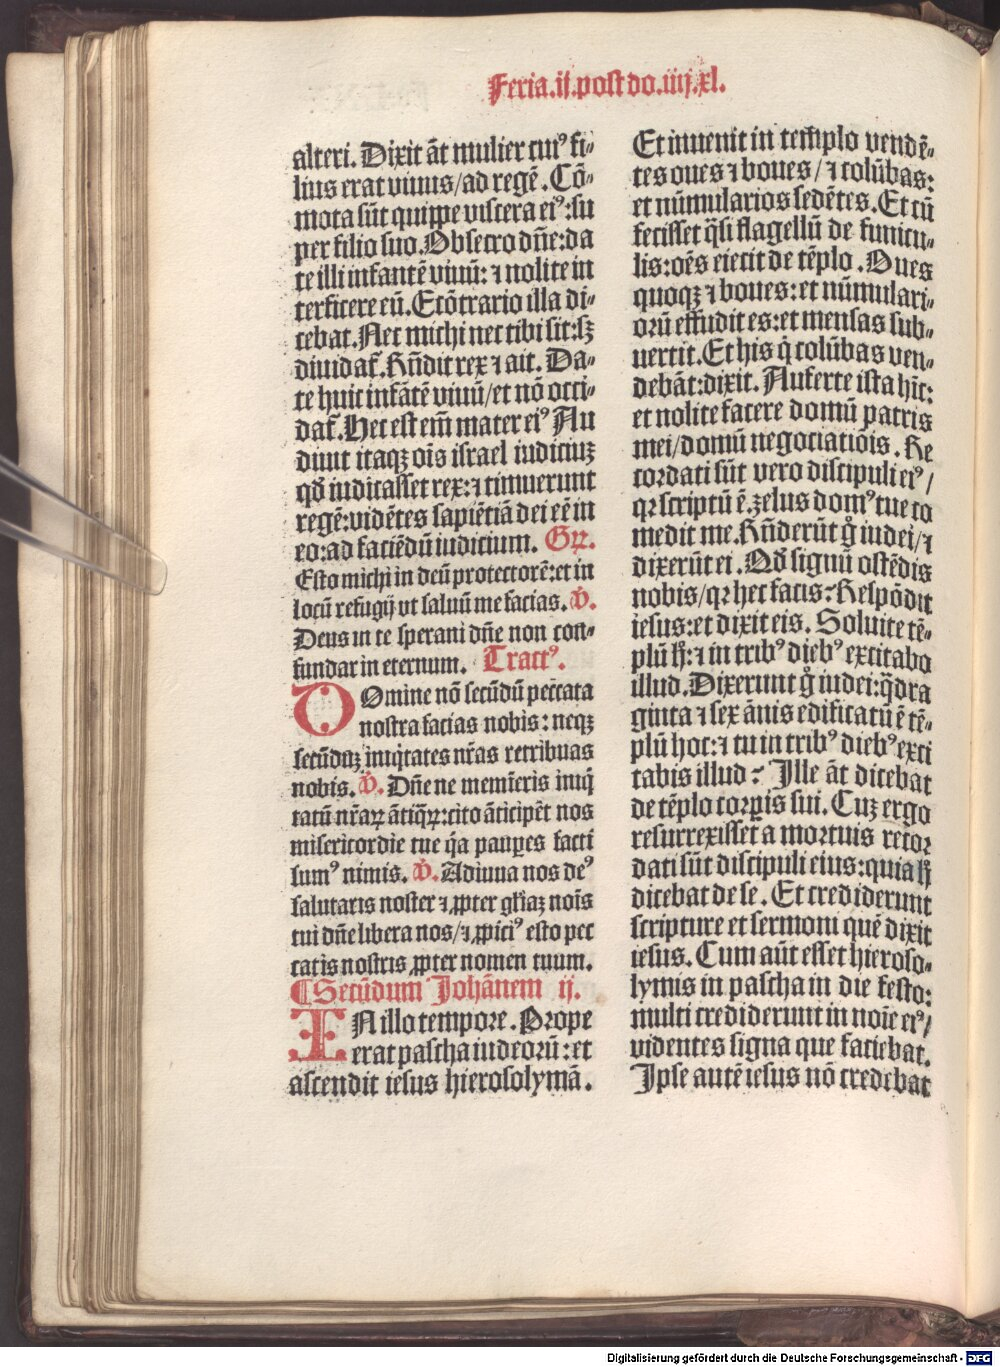 Feria.ij.post do.iiij.xl.
alteri. Dixit āt mulier cuiꝰ fi⸗
lius erat viuus/ad regē. Cō⸗
mota sūt quippe viscera eiꝰ:su
per filio suo. Obsecro dn̄e:da
te illi infantē viuū: ⁊ nolite in
terficere eū. Ecōtrario illa di⸗
cebat. Nec michi nec tibi sit:sꝫ
diuidat᷑. Rn̄dit rex ⁊ ait. Da⸗
te huic infātē viuū/et nō occi⸗
dat᷑. Hec est em̄ mater eiꝰ Au
diuit itaqꝫ oīs israel iudiciuꝫ
qd̄ iudicasset rex: ⁊ timuerunt
regē:vidētes sapiētiā dei eē in
eo:ad faciēdū iudicium. Gꝝ.
Esto michi in deū protectorē:et in
locū refugij vt saluū me facias. v̄.
Deus in te speraui dn̄e non con⸗
fundar in eternum. Tractꝰ.
Domine nō secūdū peccata
nostra facias nobis: neqꝫ
secūduꝫ iniq̇tates nr̄as retribuas
nobis. v̄. Dn̄e ne memīeris iniq̇
tatū nr̄aꝝ ātiq̄ꝝ:cito āticipēt nos
misericordie tue q̇a pauꝑes facti
sumꝰ nimis. v̄. Adiuua nos deꝰ
salutaris noster ⁊ ꝓpter gl̄iaꝫ noīs
tui dn̄e libera nos/⁊ ꝓpiciꝰ esto pec
catis nostris ꝓpter nomen tuum.
¶ Secūdum Johānem ij.
IN illo tempore. Prope
erat pascha iudeorū: et
ascendit iesus hierosolymā.
Et inuenit in tem̄plo vendē⸗
tes oues ⁊ boues/ ⁊ colūbas:
et nūmularios sedētes. Et cū
fecisset q̄si flagellū de funicu⸗
lis:oēs eiecit de tēplo. Oues
quoqꝫ ⁊ boues:et nūmulari⸗
orū effudit es:et mensas sub⸗
uertit. Et his q̇ colūbas ven⸗
debāt:dixit. Auferte ista hīc:
et nolite facere domū patris
mei/domū negociatiōis. Re
cordati sūt vero discipuli eiꝰ/
qꝛ scriptū ē. zelus domꝰ tue co
medit me. Rn̄derūt g̊ iudei/⁊
dixerūt ei. Qd̄ signū ostēdis
nobis/qꝛ hec facis? Respōdit
iesus:et dixit eis. Soluite tē⸗
plū h̄: ⁊ in tribꝰ diebꝰ excitabo
illud. Dixerunt g̊ iudei:q̄dra
ginta ⁊ sex ānis edificatū ē tē⸗
plū hoc: ⁊ tu in tribꝰ diebꝰ exci
tabis illud? Ille āt dicebat
de tēplo corꝑis sui. Cuꝫ ergo
resurrexisset a mortuis recor
dati sūt discipuli eius:quia h̄
dicebat de se. Et crediderunt
scripture et sermoni quē dixit
iesus. Cum aūt esset hieroso⸗
lymis in pascha in die festo:
multi crediderunt in noīe eiꝰ/
videntes signa que faciebat.
Ipse autē iesus nō credebat
Digitalisierung gefördert durch die Deutsche Forschungsgemeinschaft - DFG